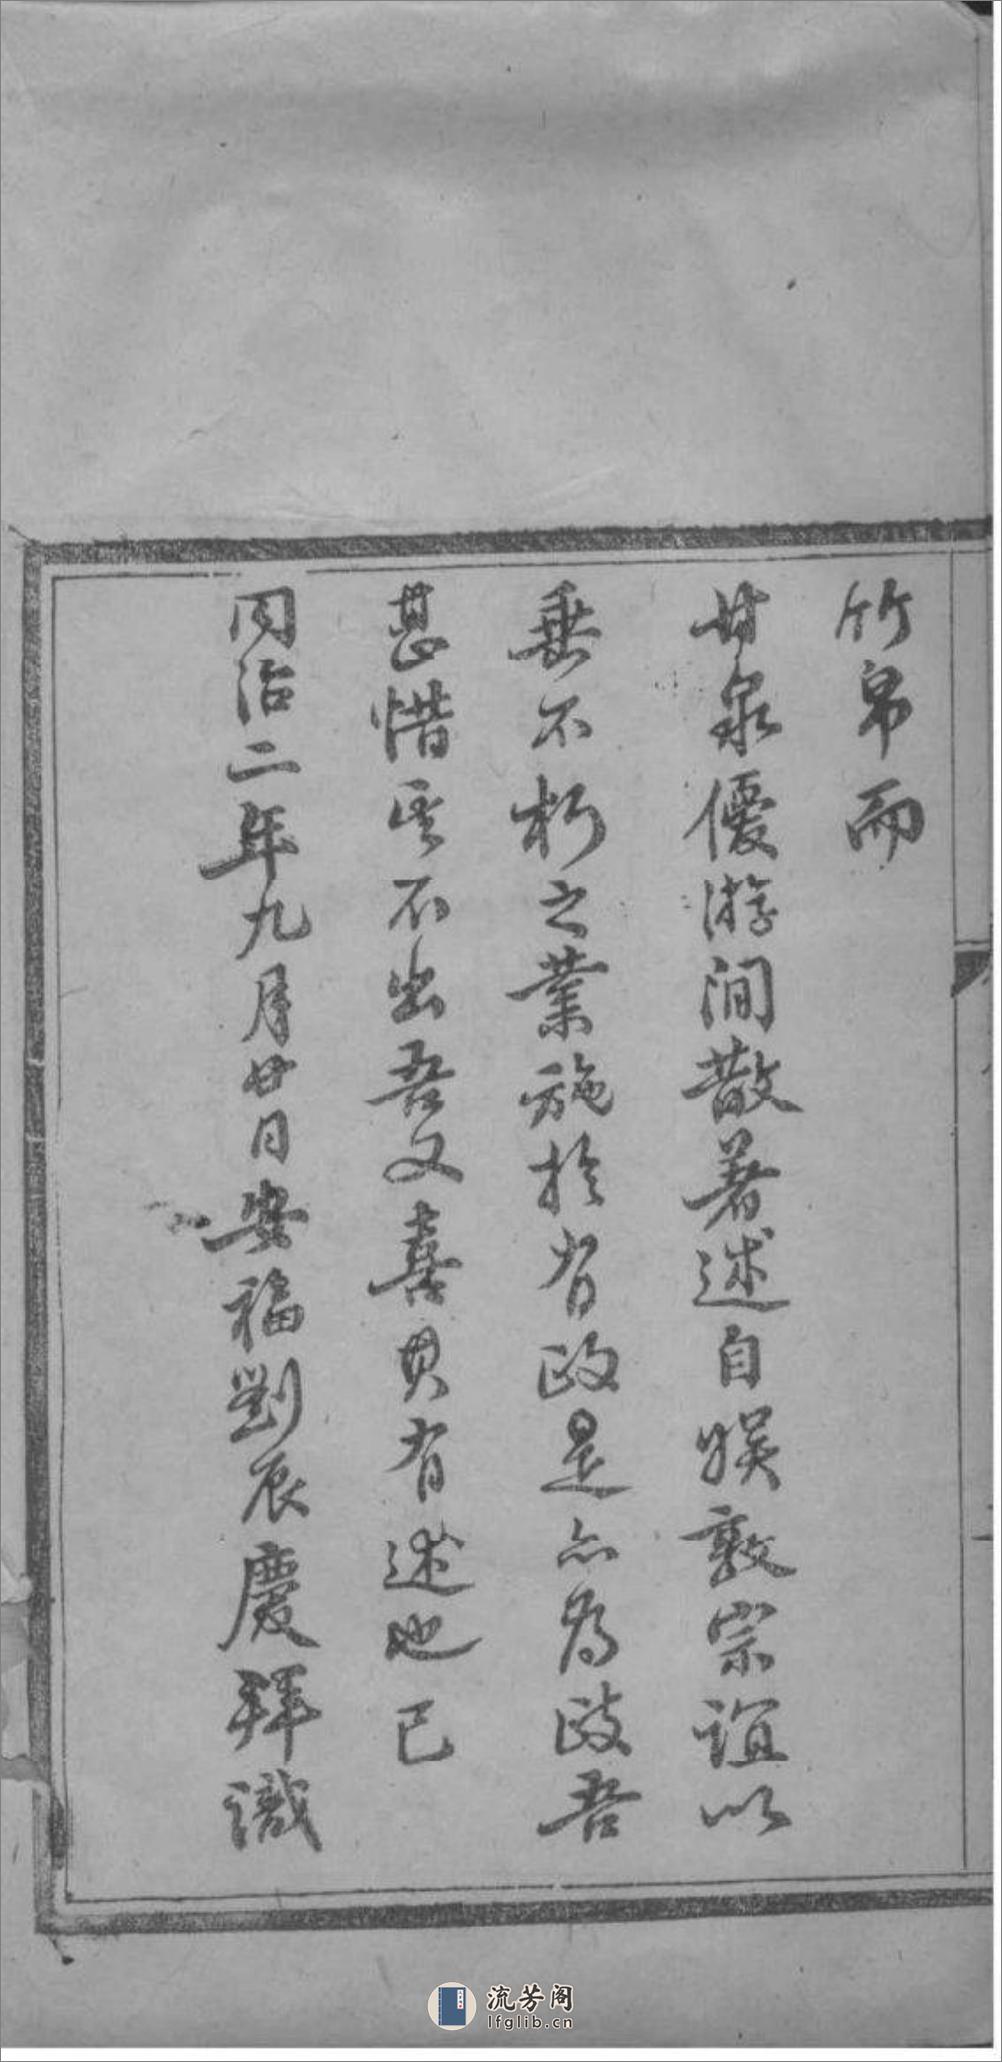 竹帛而
甘泉優游澗散著述自娛敦宗誼以
垂不朽之業施於有政是亦為政吾
甚惜其不出吾又喜其有述也已
同治二年九月廿日安福劉辰慶拜識
流芳阁
lfglib.cn